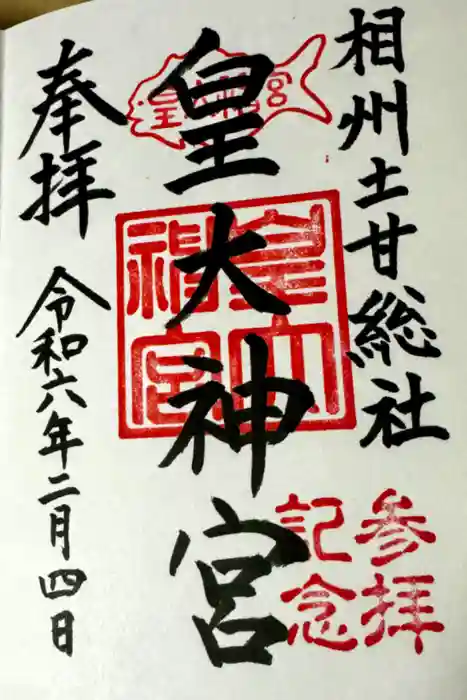 相州土甘総社
皇大神宮
皇大神宮
皇大神宮
参拝
記念
奉拝
令和六年二月四日